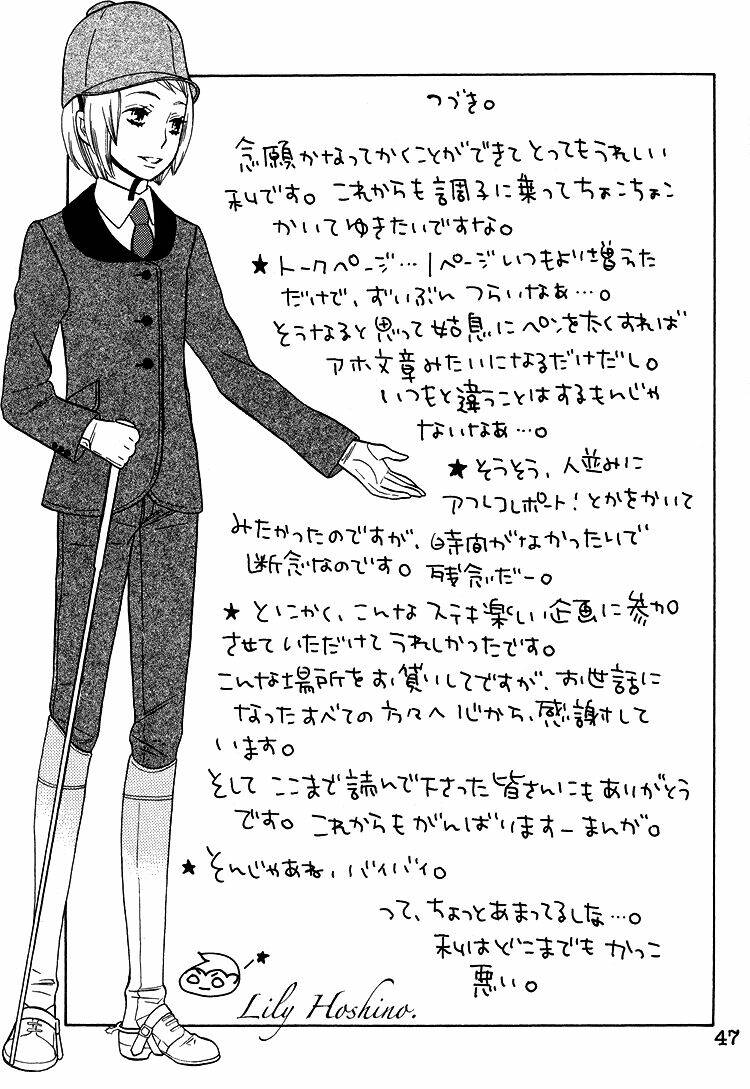 つづき。
念願かなってかくことができてとってもうれしい
私です。これからも調子に乗ってちょこちょこ
かいてゆきたいですな。
★トークページ…1ページいつもより増えた
だけで、ずいぶんつらいなあ…。
そうなると思って姑息にペンを太くすれば
アホ文章みたいになるだけだし。
いつもと違うことはするもんじゃ
ないなあ…。
★そうそう、人並みに
アフレコレポート!とかをかいて
みたかったのですが、時間がなかったいで
断念なのです。残念だー。
★とにかく、こんなステキ楽しい企画に参加
させていただけてうれしかったです。
こんな場所をお貸いしてですが、お世話に
なったすべての方々へ心から、感謝して
います。
そしてここまで読んで下さった皆さんにもありがとう
です。これからもがんばりますーまんが。
★そんじゃあね、バイバイ。
って、ちょっとあまってるしな…。
私はどこまでもかっこ
悪い。
Lily Hoshino.
47